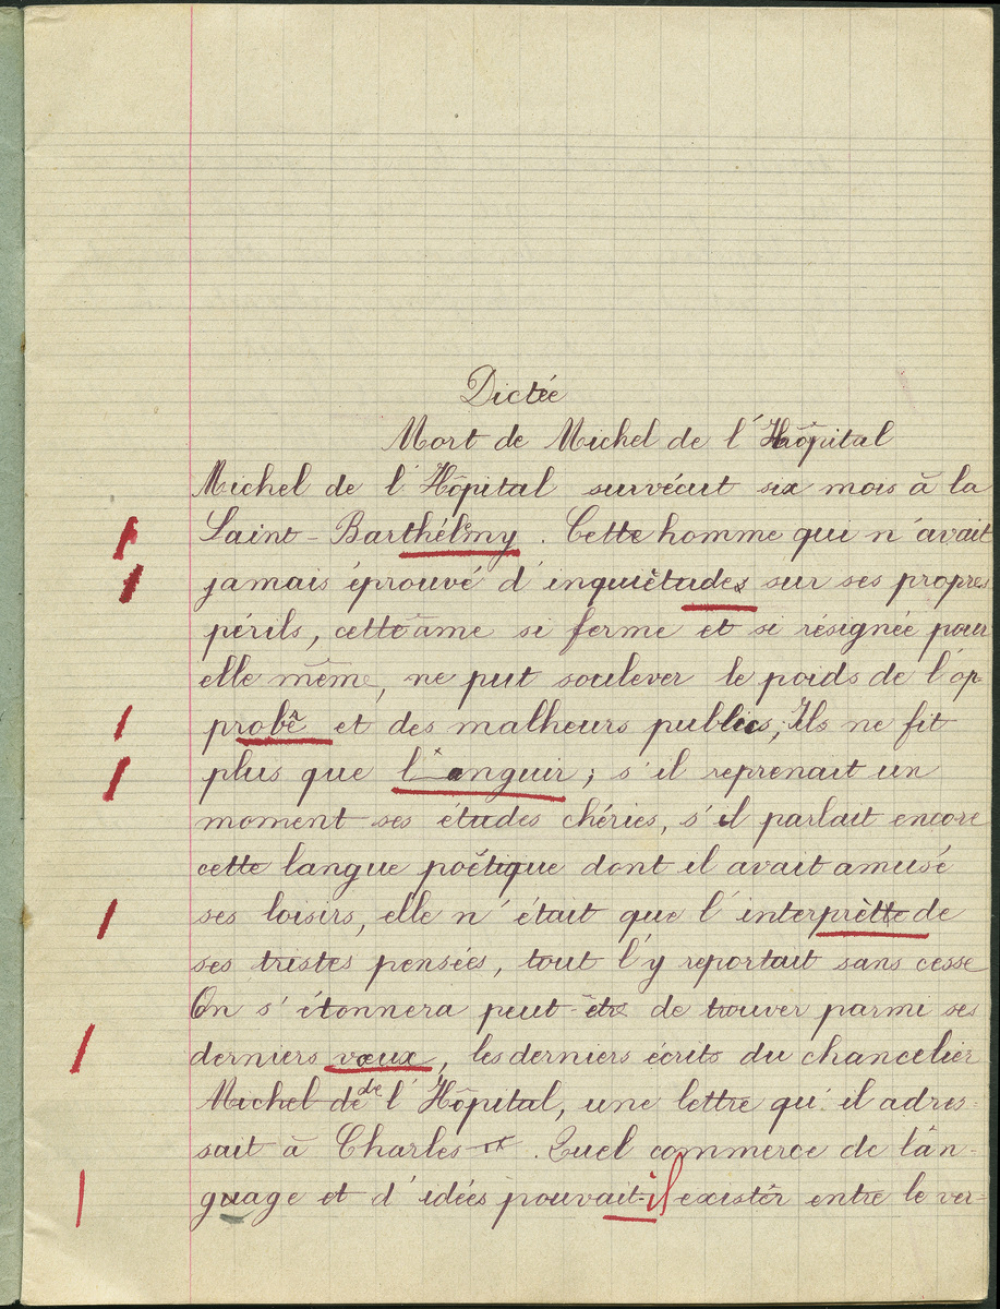 Dictée
Mort de Michel de l'Hôpital
Michel de l'Hôpital survécut six mois à la
Saint-Barthélemy. Cette homme qui n'avait
jamais éprouvé d'inquiètudes sur ses propres
périls, cette âme si ferme et si résignée pour
elle même, ne put soulever le poids de l'op-
probê et des malheurs publics; Ils ne fit
plus que l'anguir; s'il reprenait un
moment ses études chéries, s'il parlait encore
cette langue poëtique dont il avait amusé
ses loisirs, elle n'était que l'interprètte de
ses tristes pensées, tout l'y reportait sans cesse
On s'étonnera peut-être de trouver parmi ses
derniers vœux, les derniers écrits du chancelier
Michel de de l'Hôpital, une lettre qu'il adres-
sait à Charles IX. Quel commerce de lan-
guage et d'idées pouvait-il exister entre le ver-